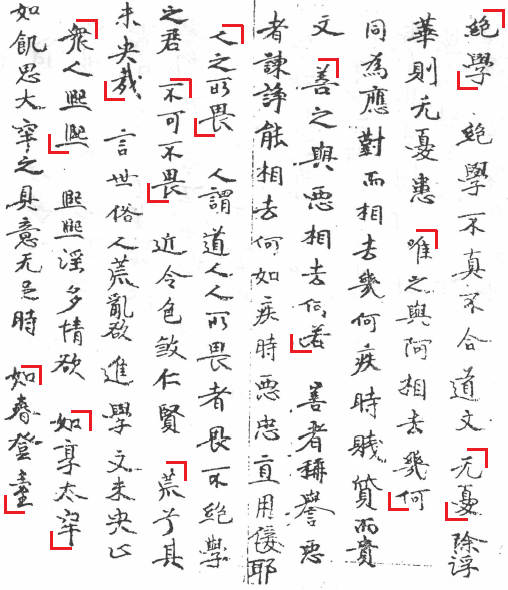 絕學 絕學不真不合道文 无憂 除浮
華則无憂患 唯之與阿相去幾何
同為應對而相去幾何疾時賤質而貴
文 善之與惡相去何若 善者稱譽惡
者諫諍能相去何如疾時惡忠直用佞耶
人之所畏 人謂道人人所畏者畏不絕學
之君 不可不畏 近令色欽仁賢 荒兮其
未央哉 言世俗人荒亂欲進學文未央止
衆人熙熙 熙熙淫多情欲 如享太牢
如飢思大牢之具意无足時 如春登臺